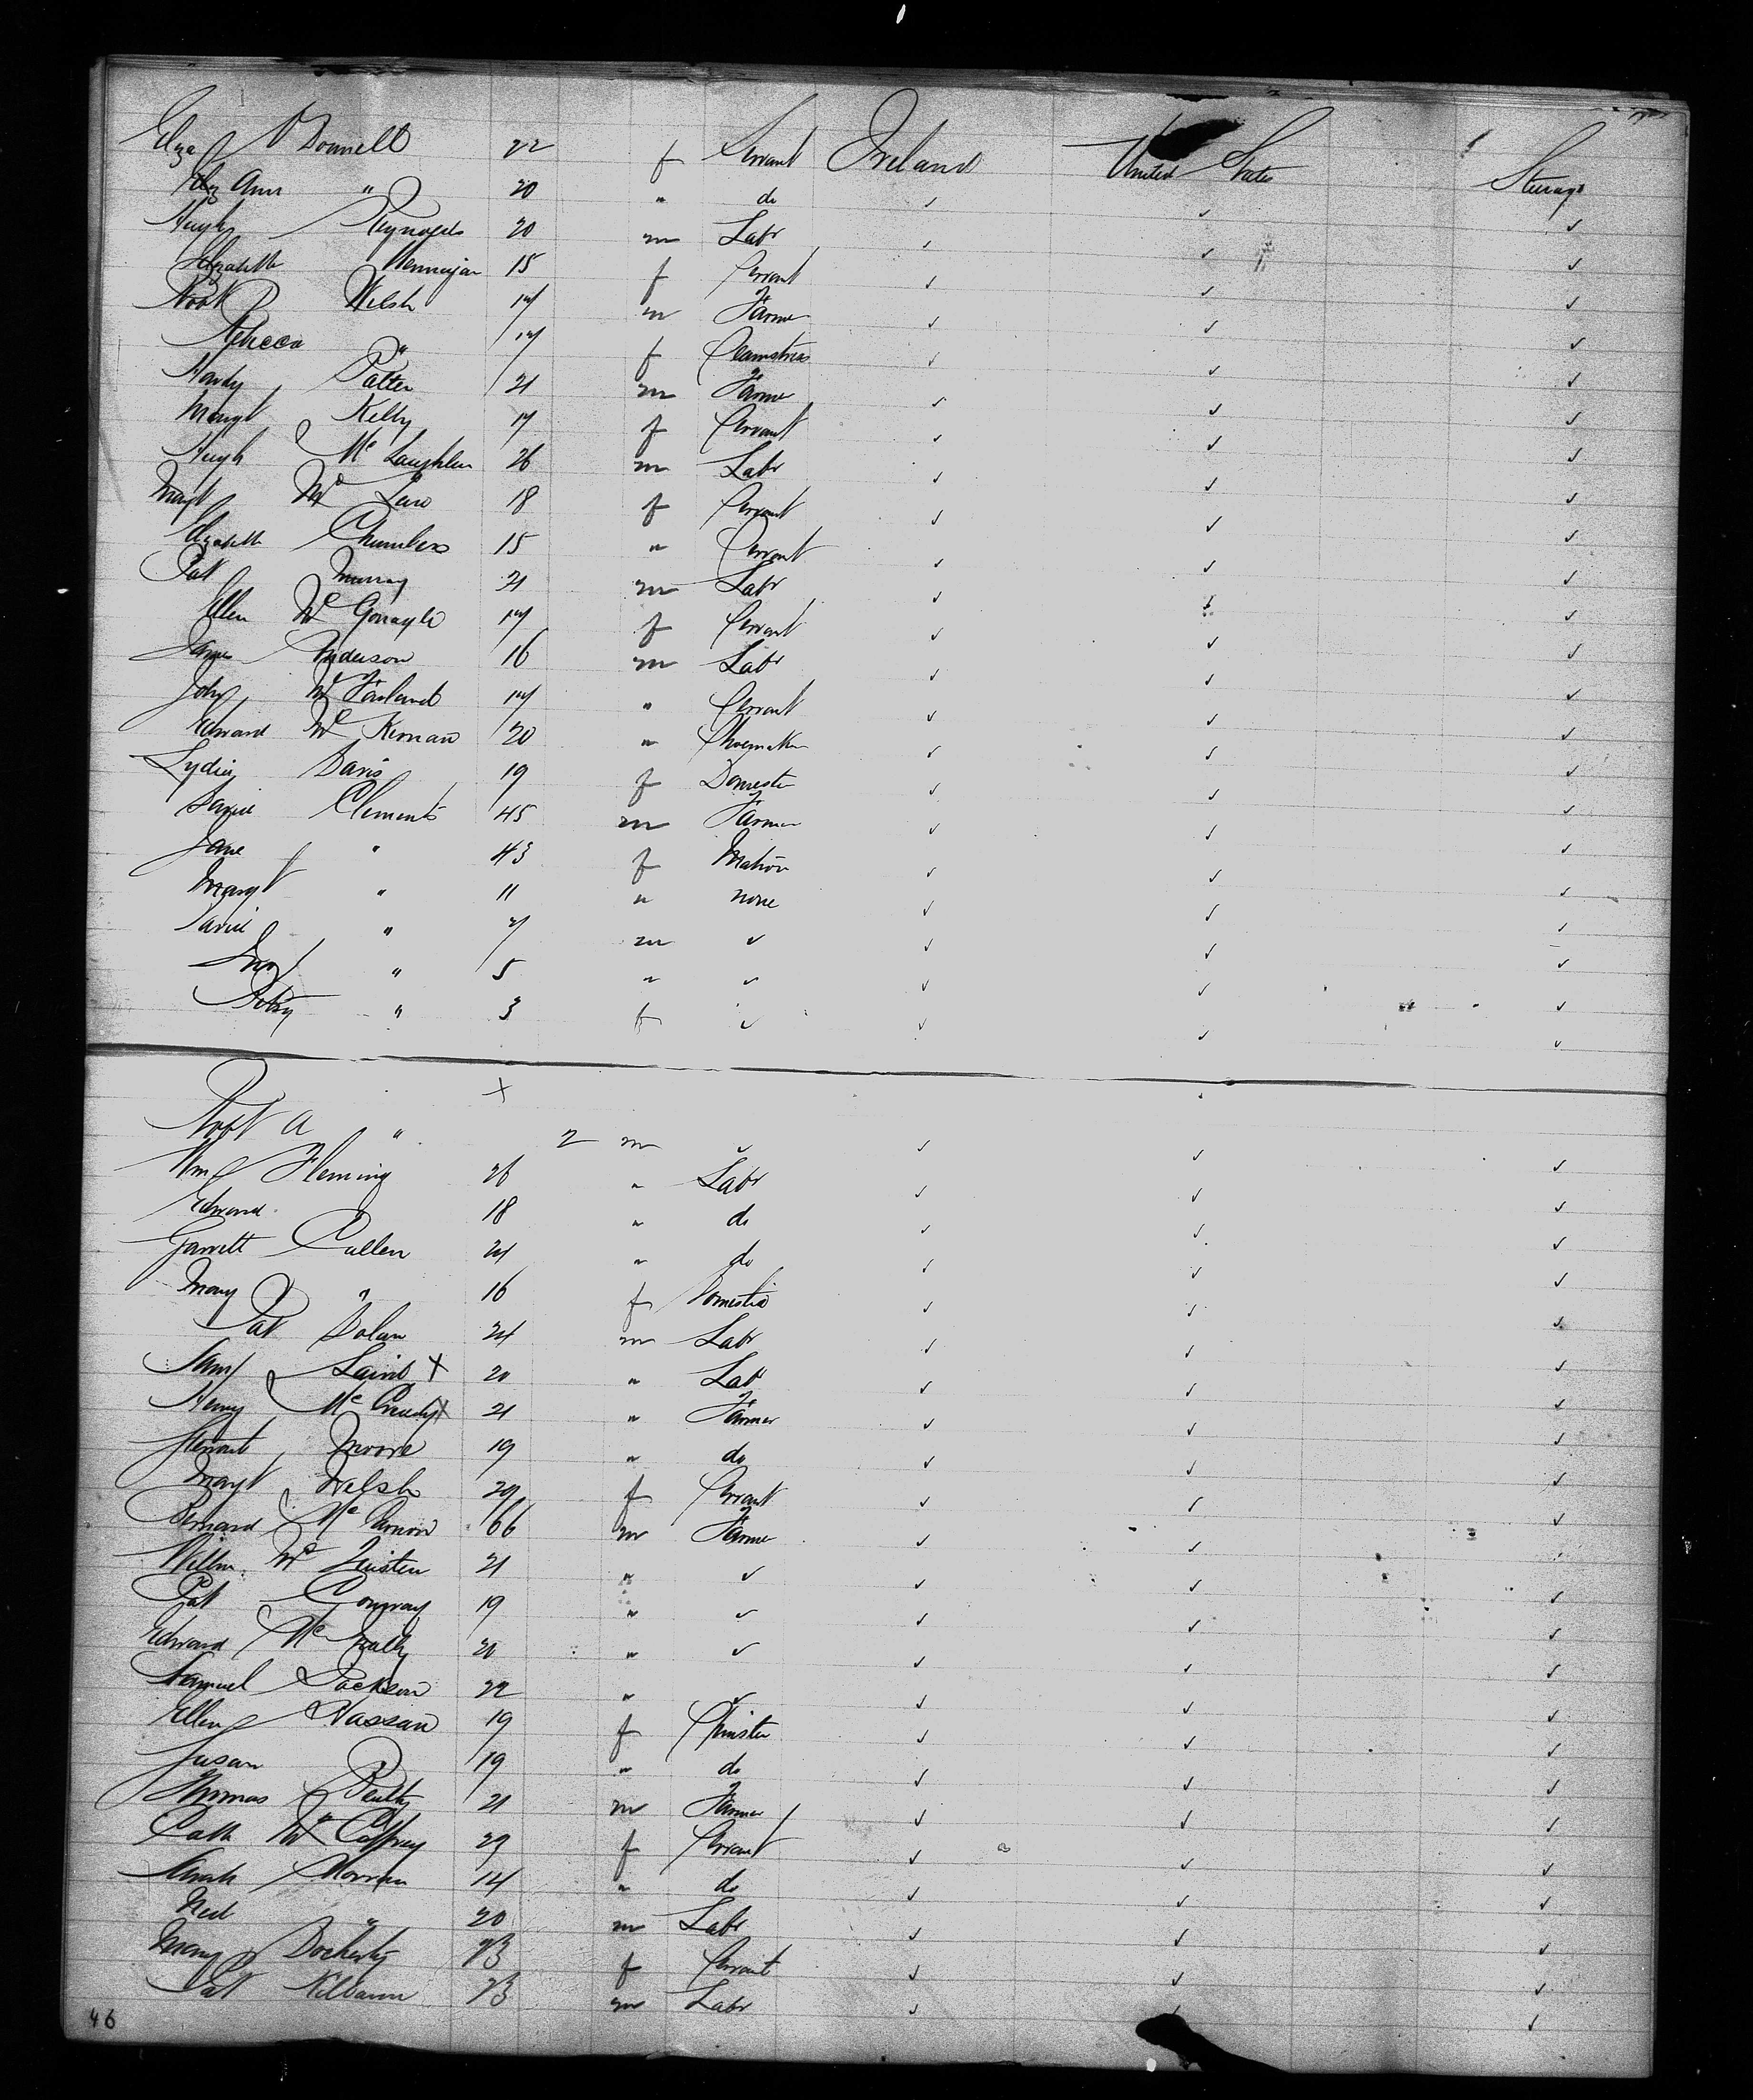 Eliza O'Donnell 22 f Servant Ireland United States Steerage
Eliz Ann " 20 " do ✓ ✓ ✓
Hugh Reynolds 20 m Labr ✓ ✓ ✓
Elizabeth 15 f Servant ✓ ✓ ✓
Robt Welsh 17 m Farmer ✓ ✓ ✓
Rebecca " 17 f Seamstress ✓ ✓ ✓
Hardy 21 m Farmer ✓ ✓ ✓
Margt Kelly 17 f Servant ✓ ✓ ✓
Hugh Mc Laughlin 26 m Labr ✓ ✓ ✓
Margt Mc 18 f Servant ✓ ✓ ✓
Elizabeth Chambers 15 " Servant ✓ ✓ ✓
Pat Murray 21 m Labr ✓ ✓ ✓
Ellen Mc Gonagle 17 f Servant ✓ ✓ ✓
James Anderson 16 m Labr ✓ ✓ ✓
John Mc Farland 17 " Servant ✓ ✓ ✓
Edward Mc Kernan 20 " Shoemaker ✓ ✓ ✓
Lydia Davis 19 f Domestic ✓ ✓ ✓
Daniel Clements 45 m Farmer ✓ ✓ ✓
Jane " 43 f Matron ✓ ✓ ✓
Margt " 11 " none ✓ ✓ ✓
" 7 m ✓ ✓ ✓ ✓
" 5 " ✓ ✓ ✓ ✓
Betsy " 3 f ✓ ✓ ✓ ✓
×
Robt A " 2 m ✓ ✓ ✓ ✓
Wm Fleming 26 " Labr ✓ ✓ ✓
Edward " 18 " do ✓ ✓ ✓
Garrett Cullen 24 " do ✓ ✓ ✓
Mary " 16 f Domestic ✓ ✓ ✓
Pat Dolan 24 m Labr ✓ ✓ ✓
Saml Laird × 20 " Labr ✓ ✓ ✓
Henry Mc × 21 " Farmer ✓ ✓ ✓
Stewart Moore 19 " do ✓ ✓ ✓
Margt Welsh 29 f Servant ✓ ✓ ✓
Bernard Mc 66 m Farmer ✓ ✓
Willm Mc 21 " ✓ ✓ ✓ ✓
Pat Conway 19 " ✓ ✓ ✓ ✓
Edward Mc Nally 20 " ✓ ✓ ✓ ✓
Samuel Jackson 22 " ✓ ✓ ✓ ✓
Ellen Hassan 19 f Spinster ✓ ✓ ✓
Susan " 19 " do ✓ ✓ ✓
Thomas 21 m Farmer ✓ ✓ ✓
Cath Mc Caffrey 29 f Servant ✓ ✓ ✓
Sarah 14 " do ✓ ✓ ✓
Ned " 20 m Labr ✓ ✓ ✓
Mary Docherty 23 f Servant ✓ ✓ ✓
Pat 23 m Labr ✓ ✓ ✓
46